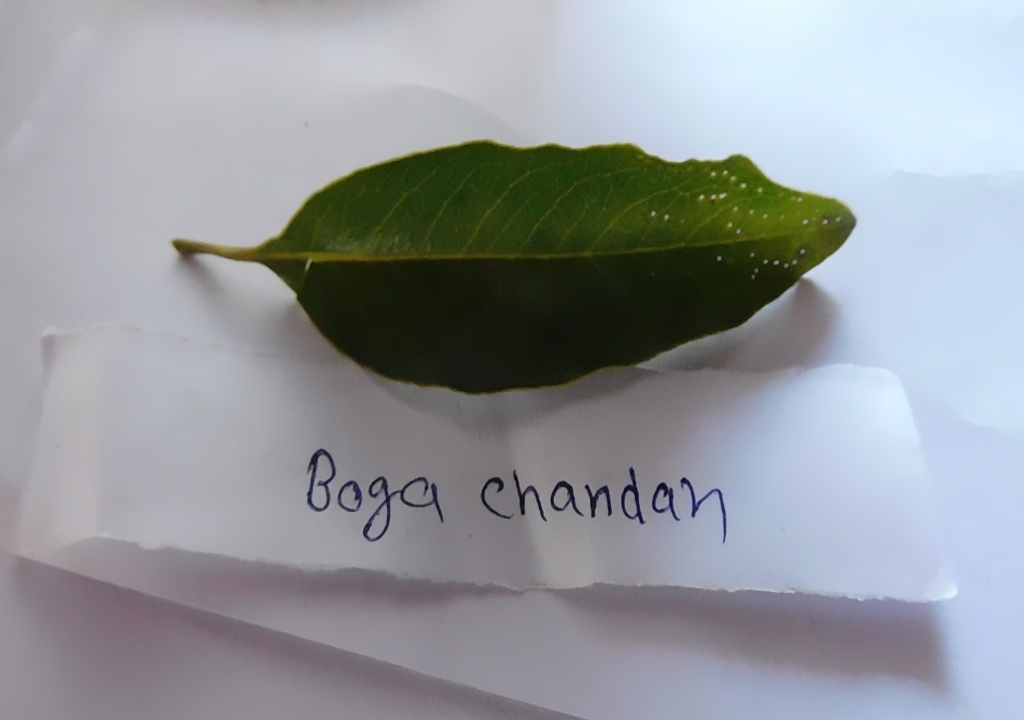 Boga chandan